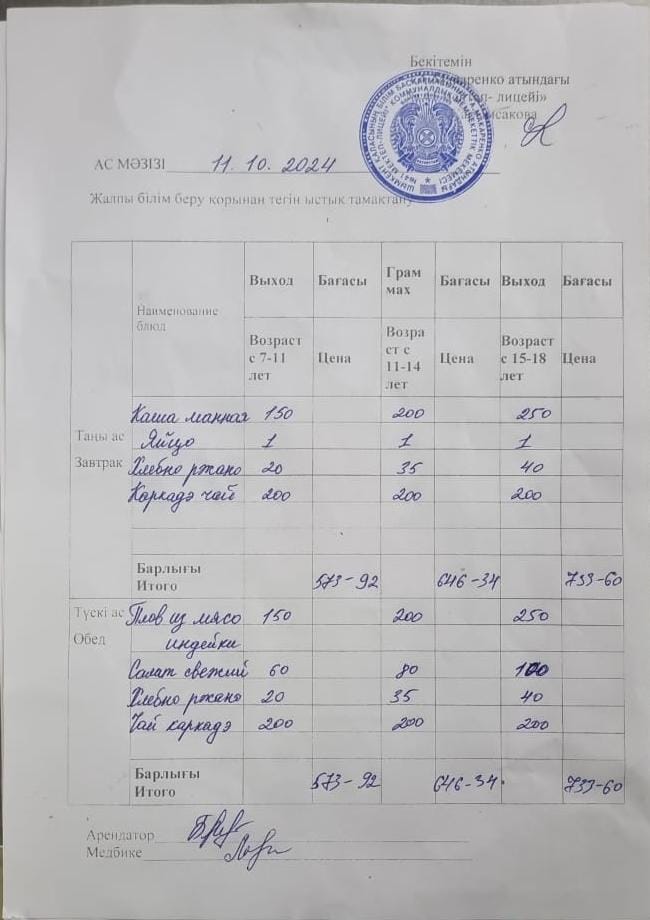 Бекітемін
аренко атындағы
лицейі»
исакова
АС МӘЗІЗІ 11. 10. 2024
Жалпы білім беру қорынан тегін ыстық тамақтану
Выход Бағасы Грам мах Бағасы Выход Бағасы
Наименование блюд
Возраст с 7-11 лет Цена Возраст с 11-14 лет Цена Возраст с 15-18 лет Цена
Таңы ас
Завтрак
Каша манная 150 200 250
Яйцо 1 1 1
Хлебно ржано 20 35 40
Каркадэ чай 200 200 200
Барлығы
Итого 573-92 646-34 733-60
Түскі ас
Обед
Плов из мясо 150 200 250
индейки
Салат свежий 60 80 100
Хлебно ржано 20 35 40
Чай каркадэ 200 200 200
Барлығы
Итого 573-92 646-34 733-60
Арендатор
Медбике